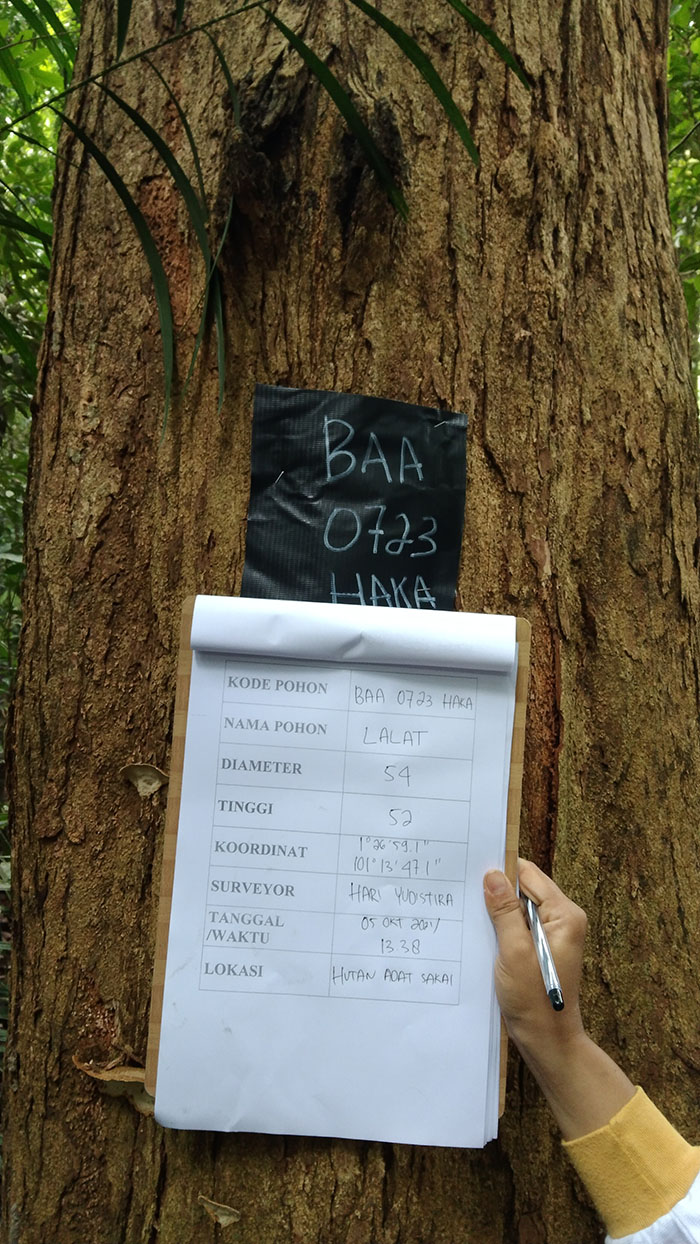 BAA
0723
HAKA
KODE POHON BAA 0723 HAKA
NAMA POHON LALAT
DIAMETER 54
TINGGI 52
KOORDINAT 1°26'59.1"
101°13'47.1"
SURVEYOR HARI YUDISTIRA
TANGGAL 05 OKT 2021/
/WAKTU 13 38
LOKASI HUTAN ADAT SAKAI